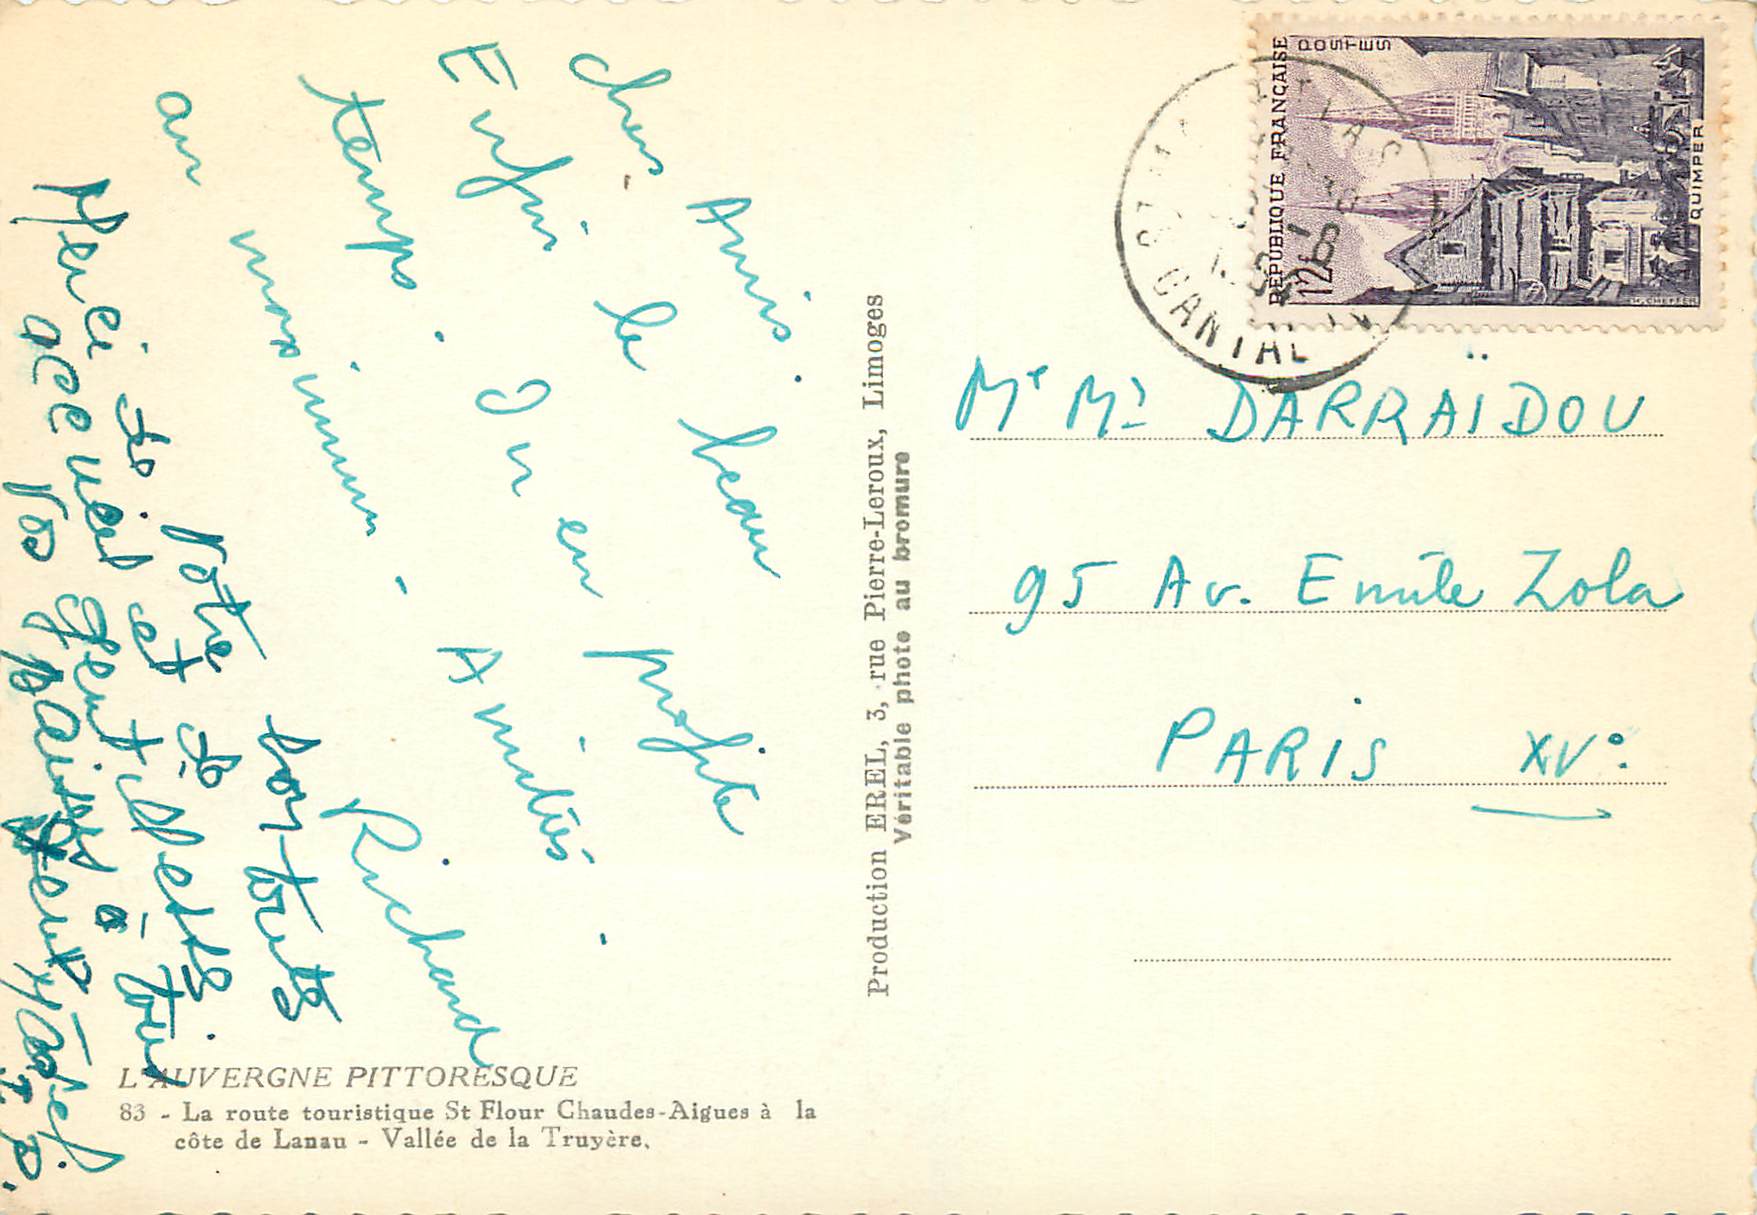 Chers Amis
Enfin le beau
temps. On en profite
au maximum -
Amitiés.
Richard
Merci de votre
accueil et de
vos gentillesses
à tous
L'AUVERGNE PITTORESQUE
83 - La route touristique St Flour Chaudes-Aigues à la
côte de Lanau - Vallée de la Truyère.
Production EREL, 3, rue Pierre-Leroux, Limoges
Véritable photo au bromure
RÉPUBLIQUE FRANÇAISE
POSTES
12F
QUIMPER
CANTAL
Mr Me DARRAÏDOU
95 Av. Emile Zola
PARIS XVe